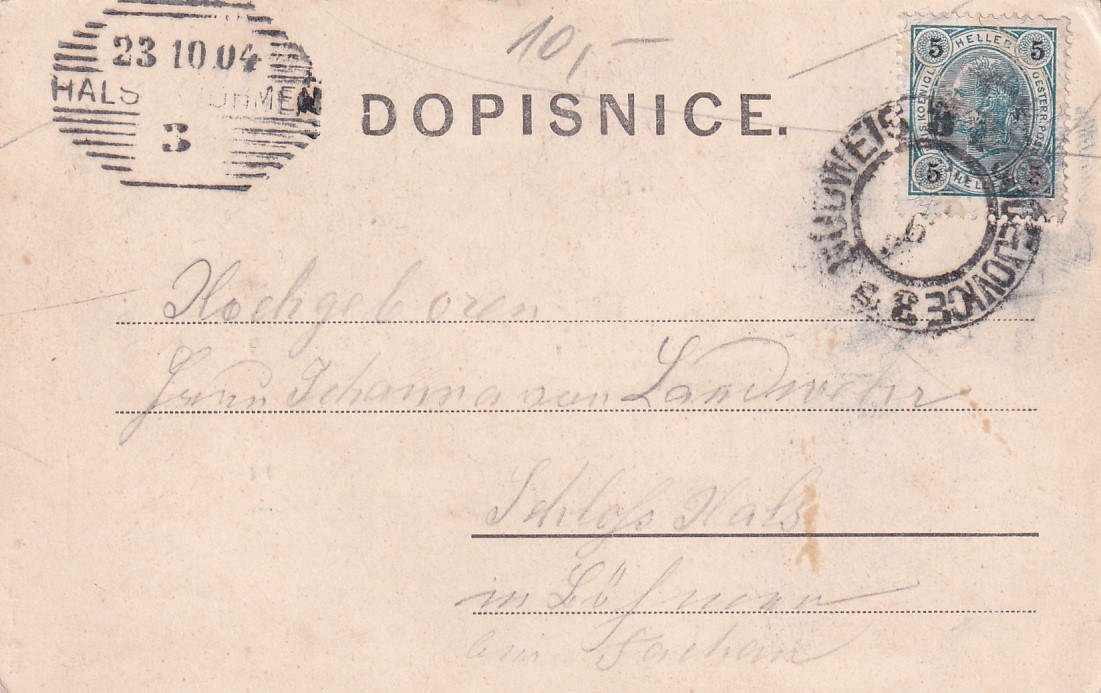 10,–
23 10.04
HALS BÖHMEN
3
DOPISNICE.
5 HELLER 5
KOENIGL. OESTERR. POST
5 HELLER 5
BUDWEIS 3
BUDĚJOVICE 3
Hochgeboren
Frau Johanna von Landwehr
Schloss Hals
in Böhmen
bei Tachau